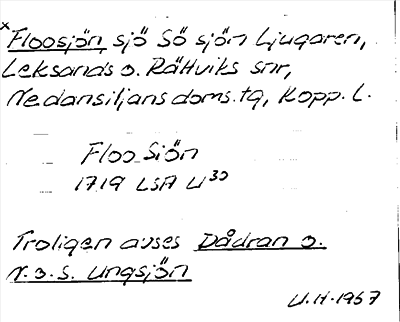 x Floosjön, sjö Sö sjön Ljugaren,
Leksands o. Rättviks snr,
Nedansiljans doms.tg, Kopp. l.
Floo Siön
1719 LSA U30
Troligen avses Dådran o.
N. o. S. Ungsjön
U.H. 1967